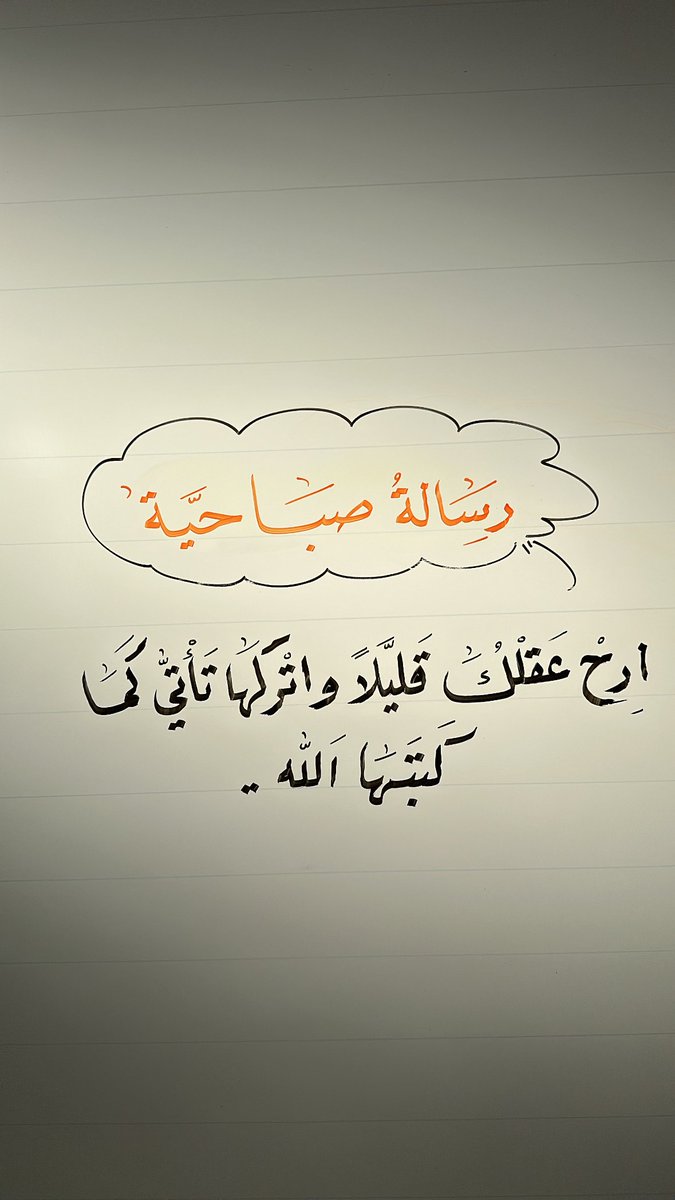 رِسَالةُ صبَاحيَّة
ارِحْ عَقلْكُ قَليَّلاً واتْركهَا تَأْتيّ كَمَا
كَبتَهَا اَللّه ..